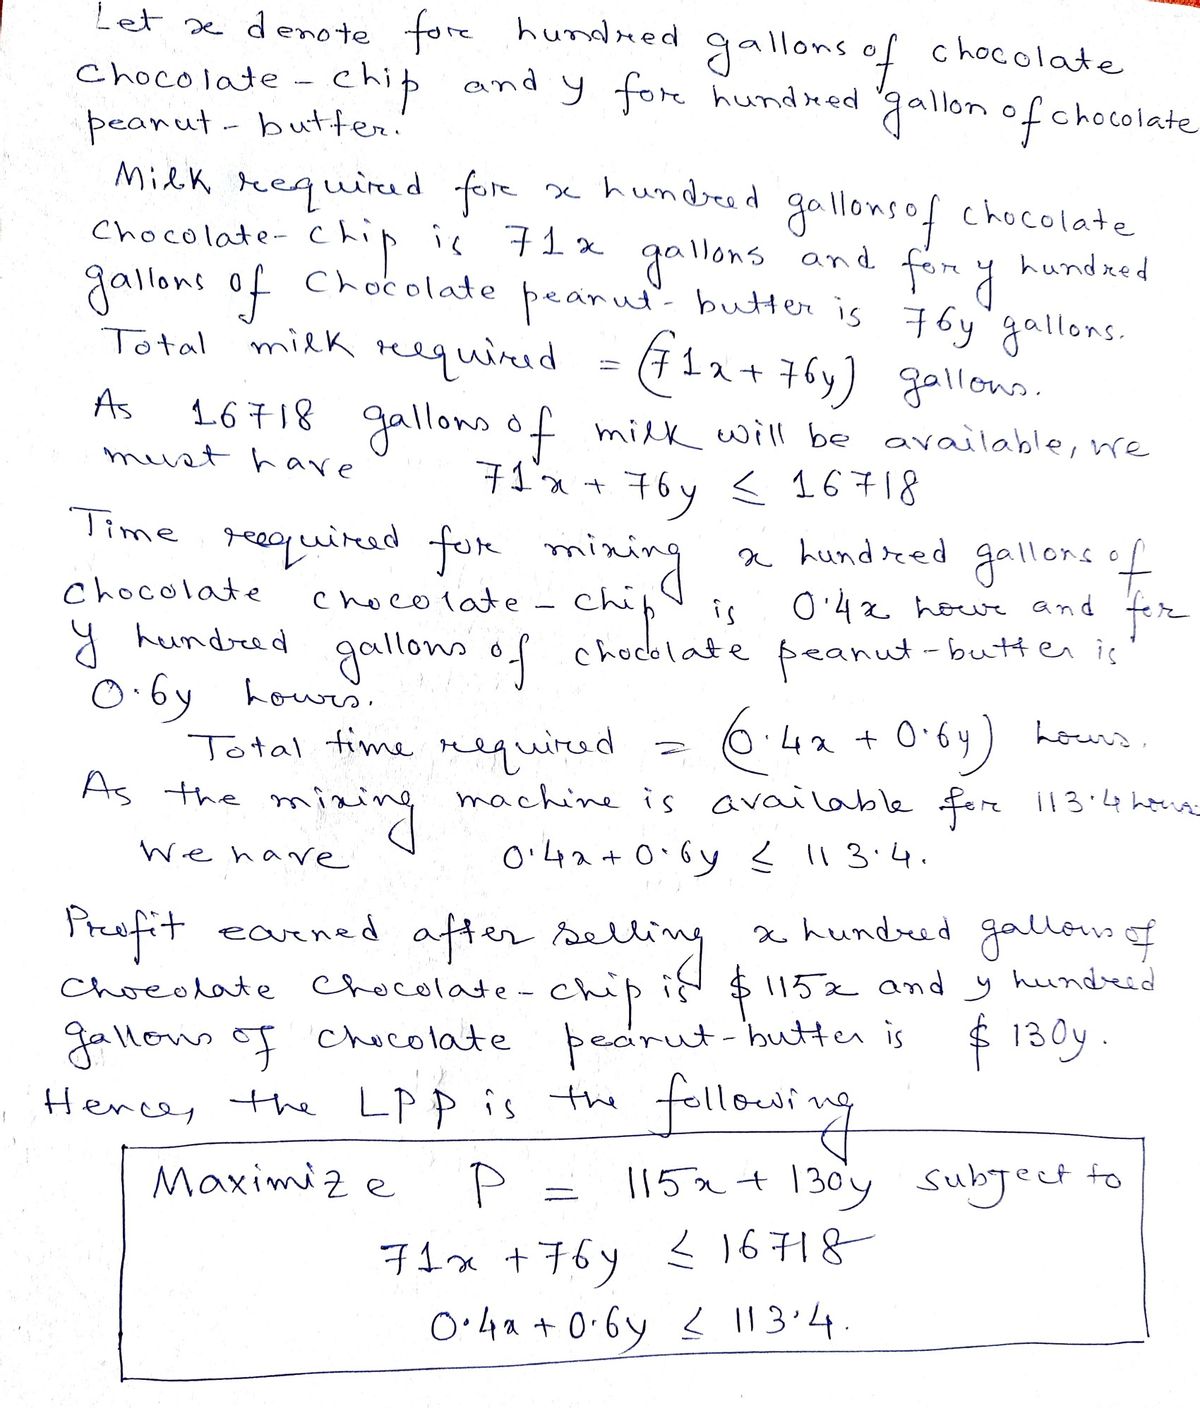 Let x denote fore hundred gallons of chocolate
chocolate-chip and y fore hundred gallon of chocolate
peanut-butter.
Milk required fore x hundred gallons of chocolate
chocolate-chip is 71x gallons and for y hundred
gallons of chocolate peanut-butter is 76y gallons.
Total milk required = (71x + 76y) gallons.
As 16718 gallons of milk will be available, we
must have 71x + 76y ≤ 16718
Time required fore mixing x hundred gallons of
chocolate chocolate-chip is 0.4x hour and for
y hundred gallons of chocolate peanut-butter is
0.6y hours.
Total time required = (0.4x + 0.6y) hours.
As the mixing machine is available for 113.4 hours
We have 0.4x + 0.6y ≤ 113.4.
Profit earned after selling x hundred gallons of
chocolate chocolate-chip is $115x and y hundred
gallons of chocolate peanut-butter is $130y.
Hence, the LPP is the following
Maximize P = 115x + 130y subject to
71x + 76y ≤ 16718
0.4x + 0.6y ≤ 113.4.